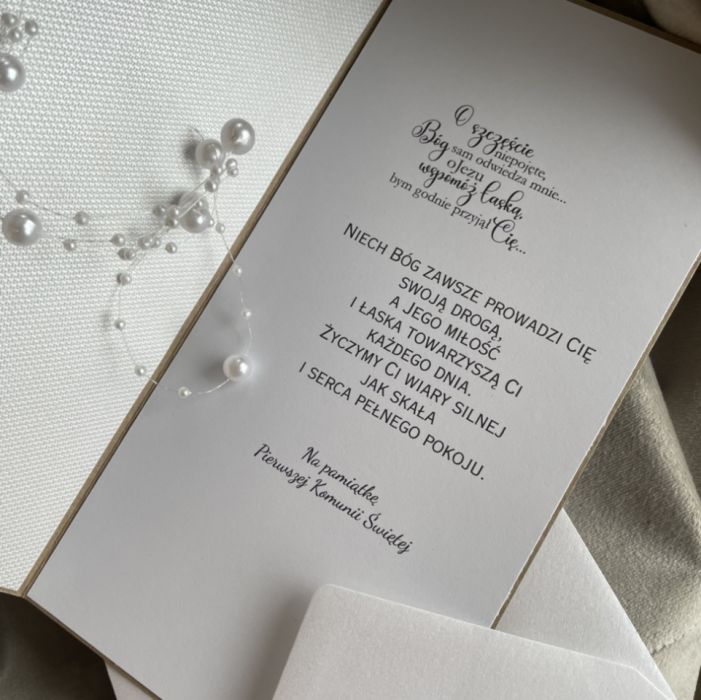 O szczęście
niepojęte,
Bóg sam odwiedza mnie...
oJezu
wspomóż łaską,
bym godnie przyjął Cię...
NIECH BÓG ZAWSZE PROWADZI CIĘ
SWOJĄ DROGĄ,
A JEGO MIŁOŚĆ
I ŁASKA TOWARZYSZĄ CI
KAŻDEGO DNIA.
ŻYCZYMY CI WIARY SILNEJ
JAK SKAŁA
I SERCA PEŁNEGO POKOJU.
Na pamiątkę
Pierwszej Komunii Świętej